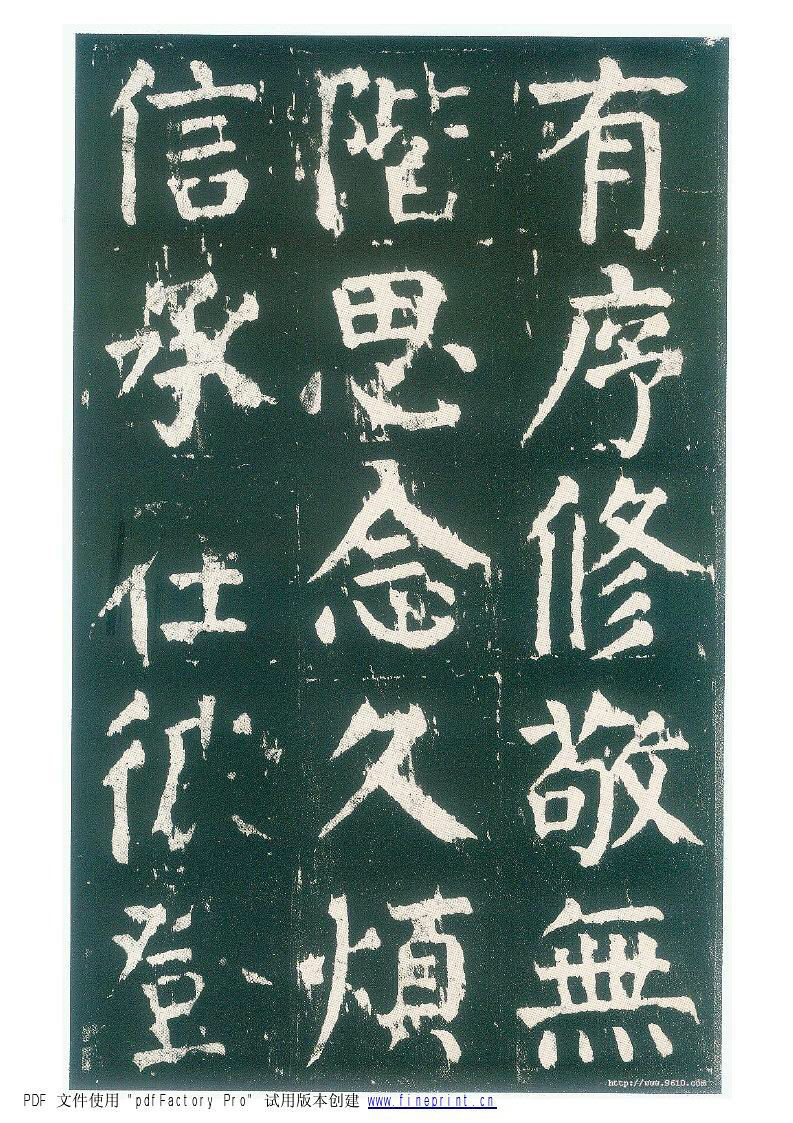 有序修敬無
陛思念久煩
信承仕從登
http://www.9610.com
PDF 文件使用 "pdfFactory Pro" 试用版本创建 www.fineprint.cn